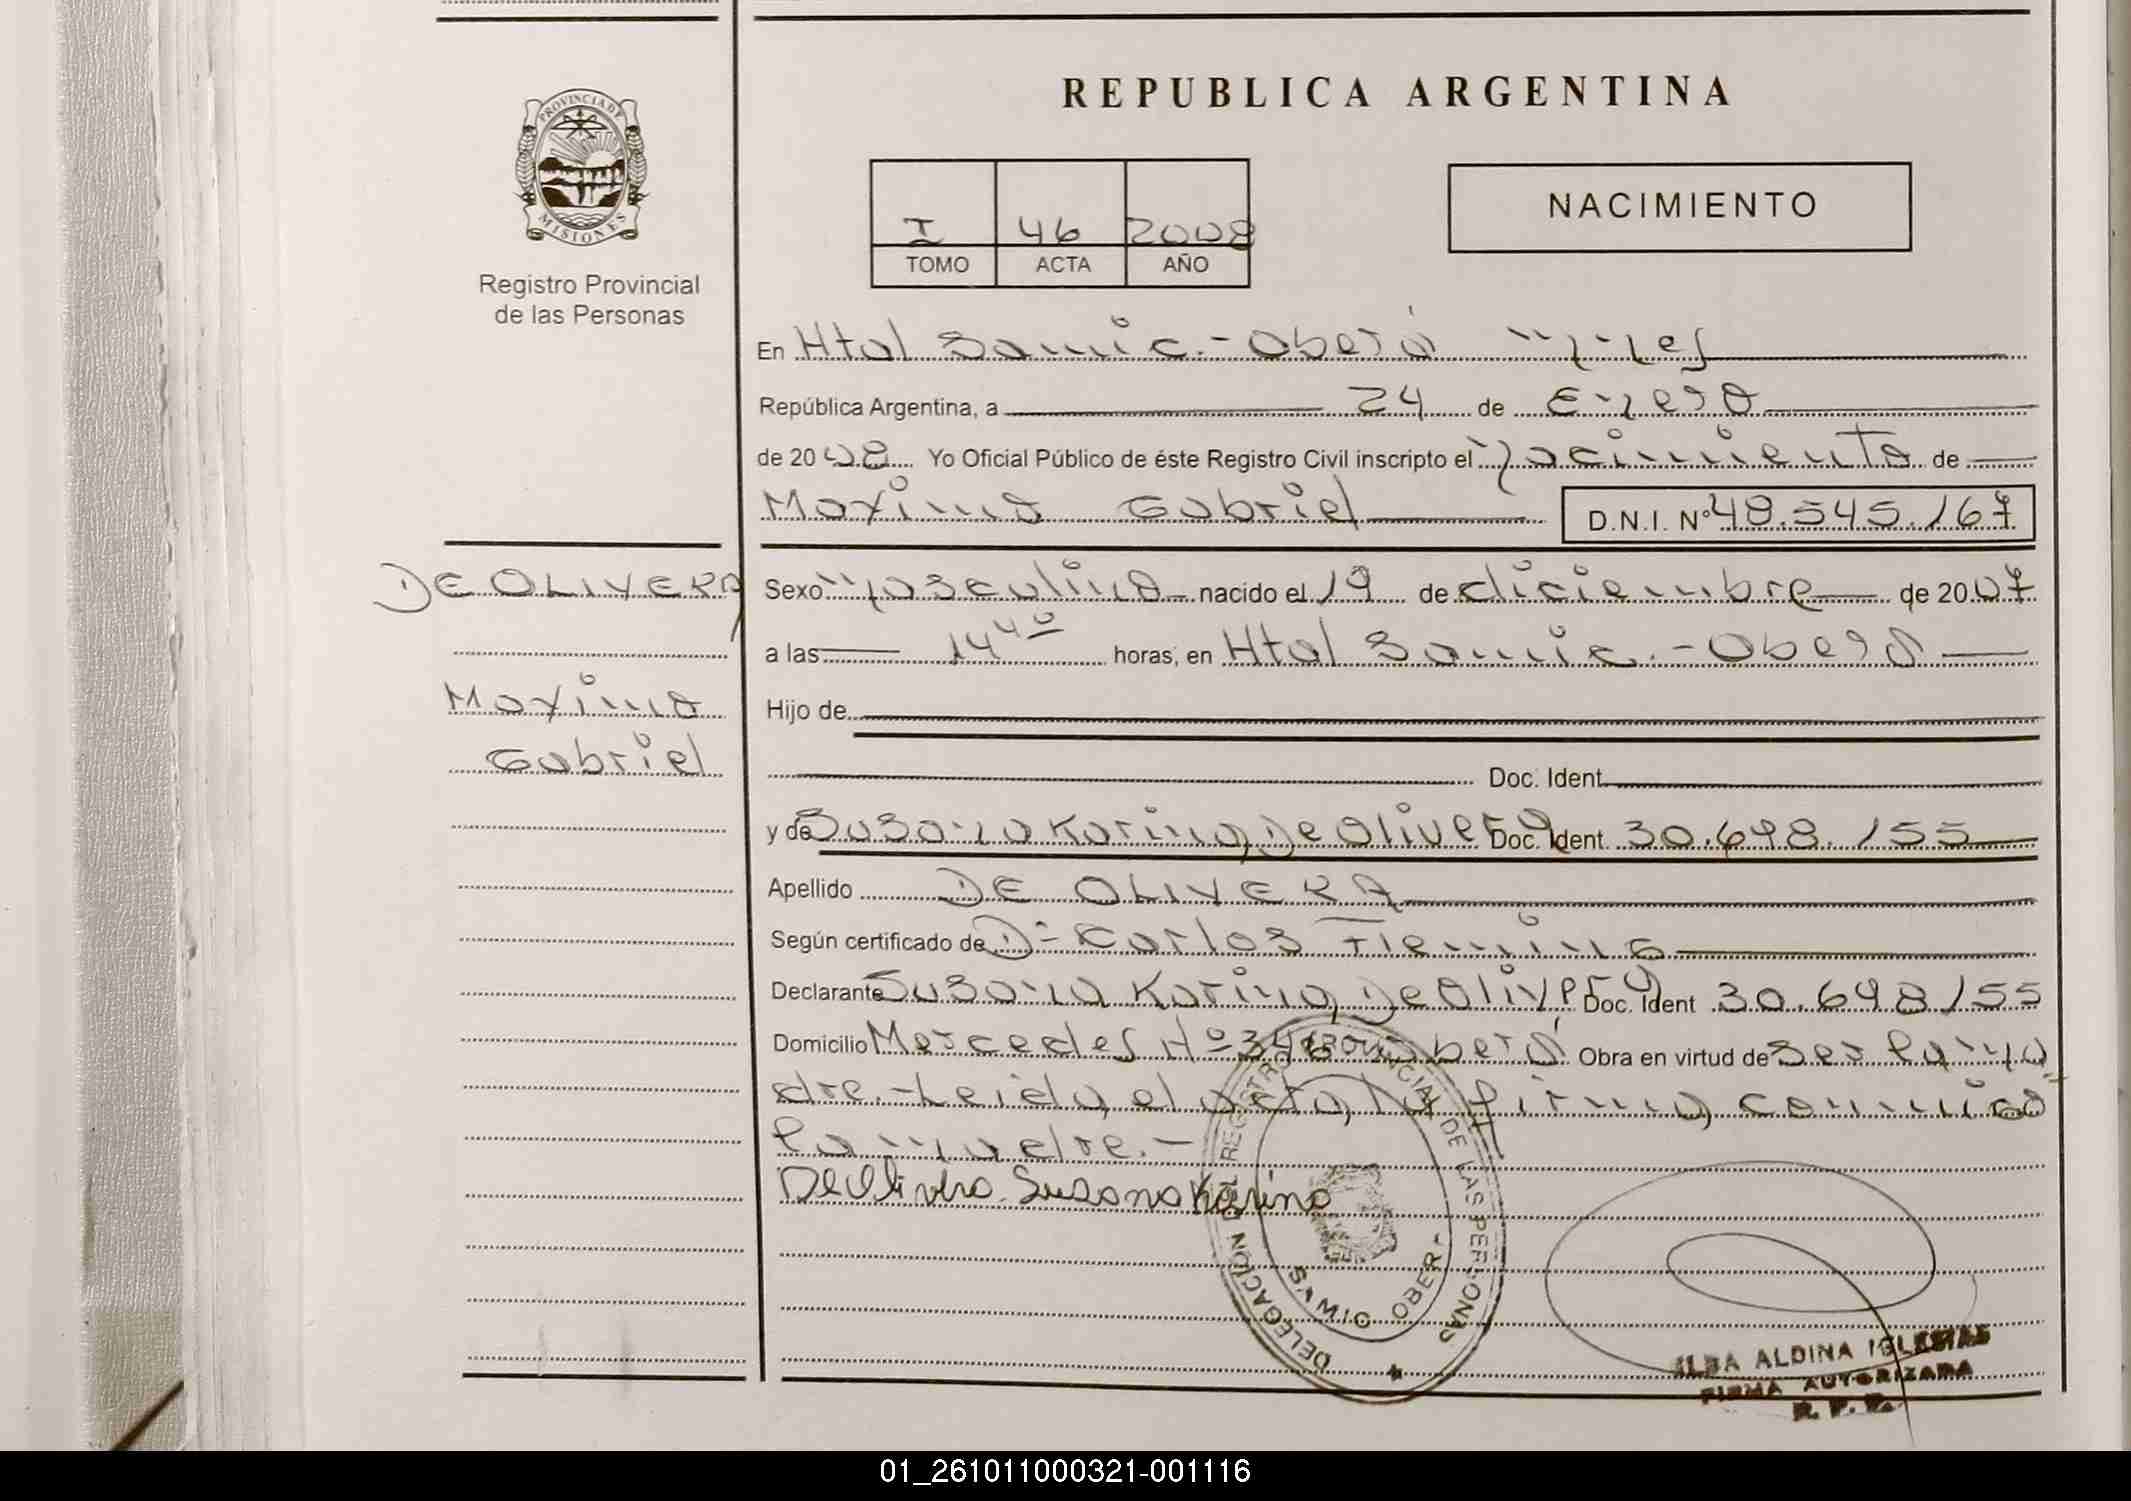 REPUBLICA ARGENTINA
PROVINCIA DE
MISIONES
Registro Provincial
de las Personas
I 46 2008
TOMO ACTA AÑO
NACIMIENTO
En Htal Samic.- Oberá Mnes
República Argentina, a 24 de Enero
de 2008 Yo Oficial Público de éste Registro Civil inscripto el Nacimiento de
Maximo Gabriel D.N.I. Nº 48.545.167
DE OLIVERA
Maximo
Gabriel
Sexo Masculino nacido el 19 de diciembre de 2007
a las 14⁴⁰ horas, en Htal Samic.- Oberá
Hijo de
Doc. Ident.
y de Susana Karina De Olivera Doc. Ident. 30.698.155
Apellido DE OLIVERA
Según certificado de Dr Carlos Fleming
Declarante Susana Karina De Olivera Doc. Ident 30.698.155
Domicilio Mercedes Nº 346 Oberá Obra en virtud de ser la ma
dre.- Leida el acta, la firma, conmigo
la madre.-
De Olivera Susana Karina
DELEGACIÓN DEL REGISTRO PROVINCIAL DE LAS PERSONAS
SAMIC OBER
ILDA ALDINA IGLESIAS
FIRMA AUTORIZADA
R. P. P.
01_261011000321-001116